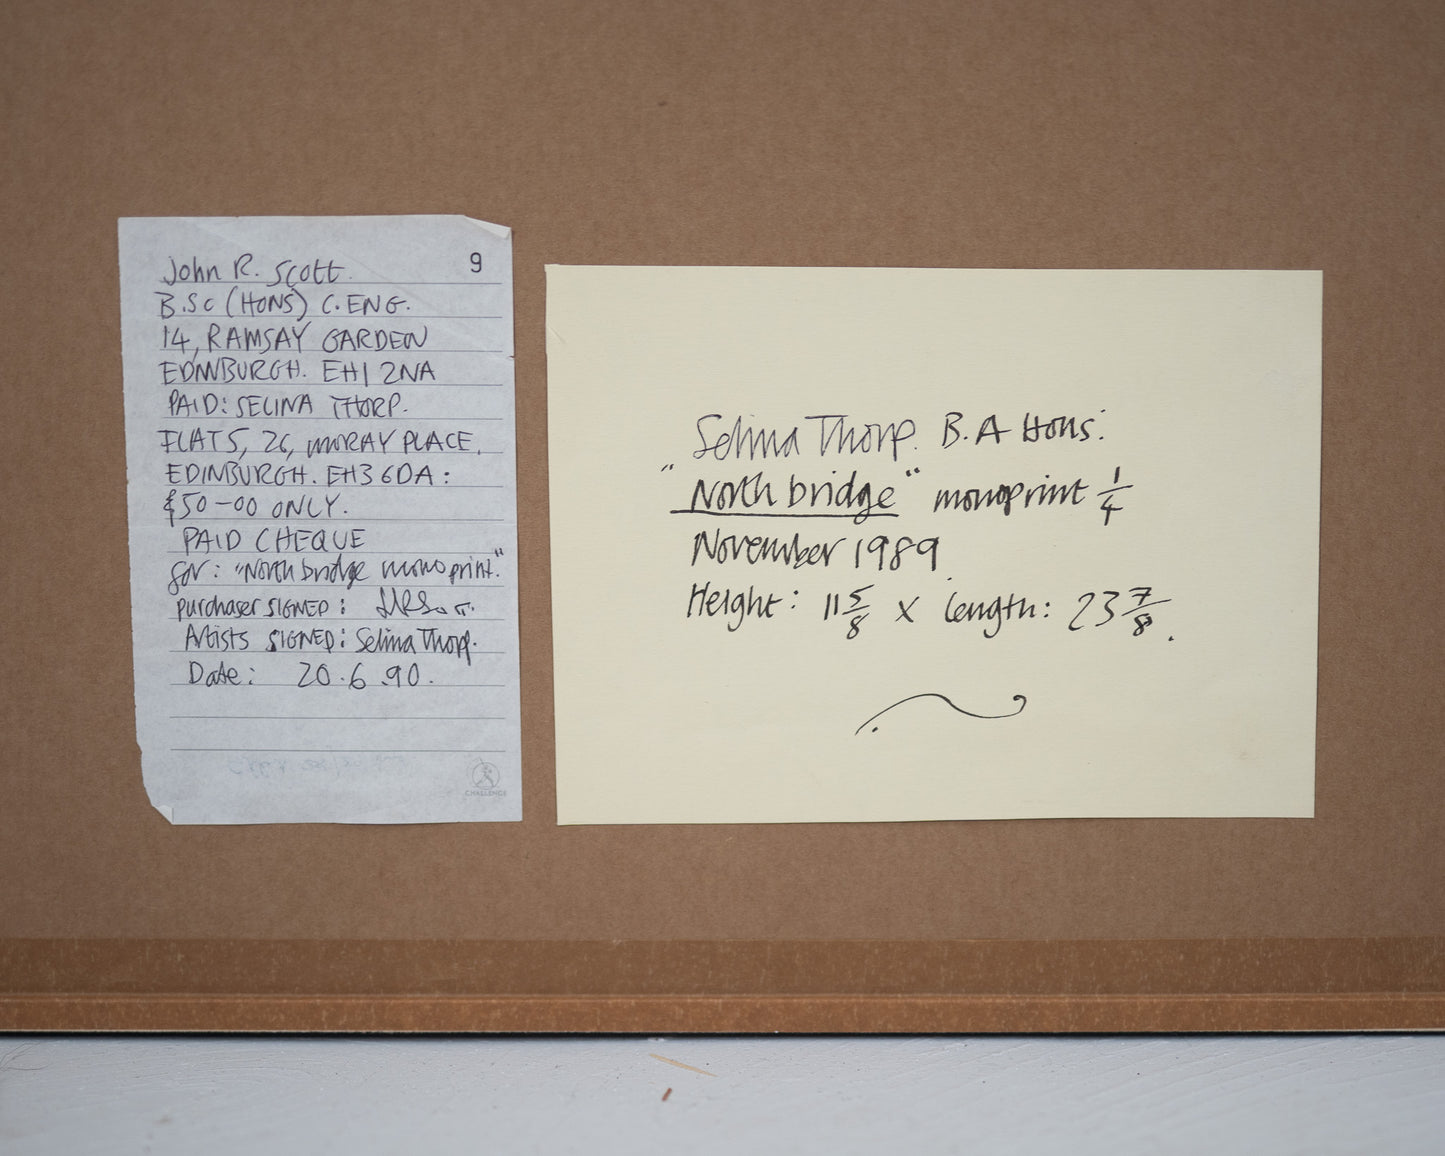 9
John R. Scott.
B.Sc (HONS) C.ENG.
14, RAMSAY GARDEN
EDINBURGH. EH1 2NA
PAID: SELINA THORP.
FLAT 5, 26, MORAY PLACE.
EDINBURGH. EH3 6DA:
£50-00 ONLY.
PAID CHEQUE
for: "North bridge monoprint."
purchaser SIGNED:
Artists SIGNED: Selina Thorp.
Date: 20.6.90.
CHALLENGE
Selina Thorp. B.A Hons:
"North bridge" monoprint 1/4
November 1989
Height: 11 5/8 x length: 23 7/8.